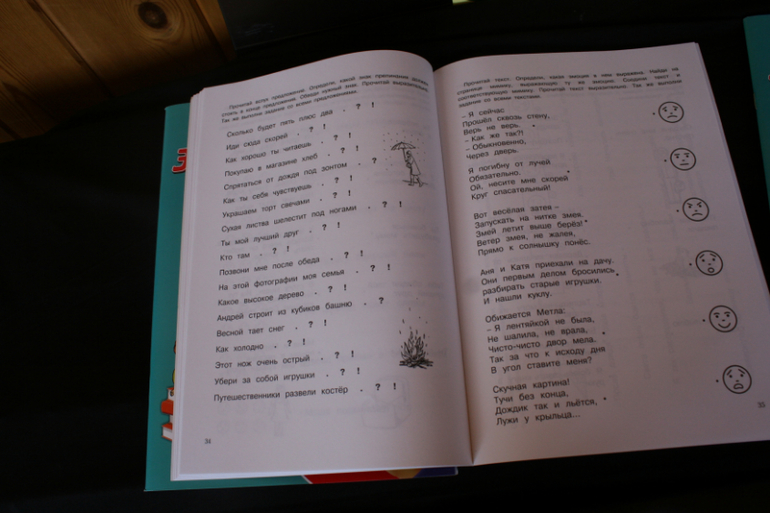 Прочитай вслух предложения. Определи, какой знак препинания должен
стоять в конце предложения. Обведи нужный знак. Прочитай выразительно.
Так же выполни задание со всеми предложениями.
Сколько будет пять плюс два . ? !
Иди сюда скорей . ? !
Как хорошо ты читаешь . ? !
Покупаю в магазине хлеб . ? !
Спрятаться от дождя под зонтом . ?
Как ты себя чувствуешь . ? !
Украшаем торт свечами . ? !
Сухая листва шелестит под ногами . ? !
Ты мой лучший друг . ? !
Кто там . ? !
Позвони мне после обеда . ? !
На этой фотографии моя семья . ? !
Какое высокое дерево . ? !
Андрей строит из кубиков башню . ?
Весной тает снег . ? !
Как холодно . ? !
Этот нож очень острый . ? !
Убери за собой игрушки . ? !
Путешественники развели костёр . ? !
34
Прочитай текст. Определи, какая эмоция в нём выражена. Найди на
странице мимику, выражающую ту же эмоцию. Соедини текст и
соответствующую мимику. Прочитай текст выразительно. Так же выполни
задание со всеми текстами.
– Я сейчас
Прошёл сквозь стену,
Верь не верь.
– Как же так?!
– Обыкновенно,
Через дверь.
Я погибну от лучей
Обязательно.
Ой, несите мне скорей
Круг спасательный!
Вот весёлая затея –
Запускать на нитке змея.
Змей летит выше берёз!
Ветер змея, не жалея,
Прямо к солнышку понёс.
Аня и Катя приехали на дачу.
Они первым делом бросились
разбирать старые игрушки.
И нашли куклу.
Обижается Метла:
– Я лентяйкой не была,
Не шалила, не врала,
Чисто-чисто двор мела.
Так за что к исходу дня
В угол ставите меня?
Скучная картина!
Тучи без конца,
Дождик так и льётся,
Лужи у крыльца...
35